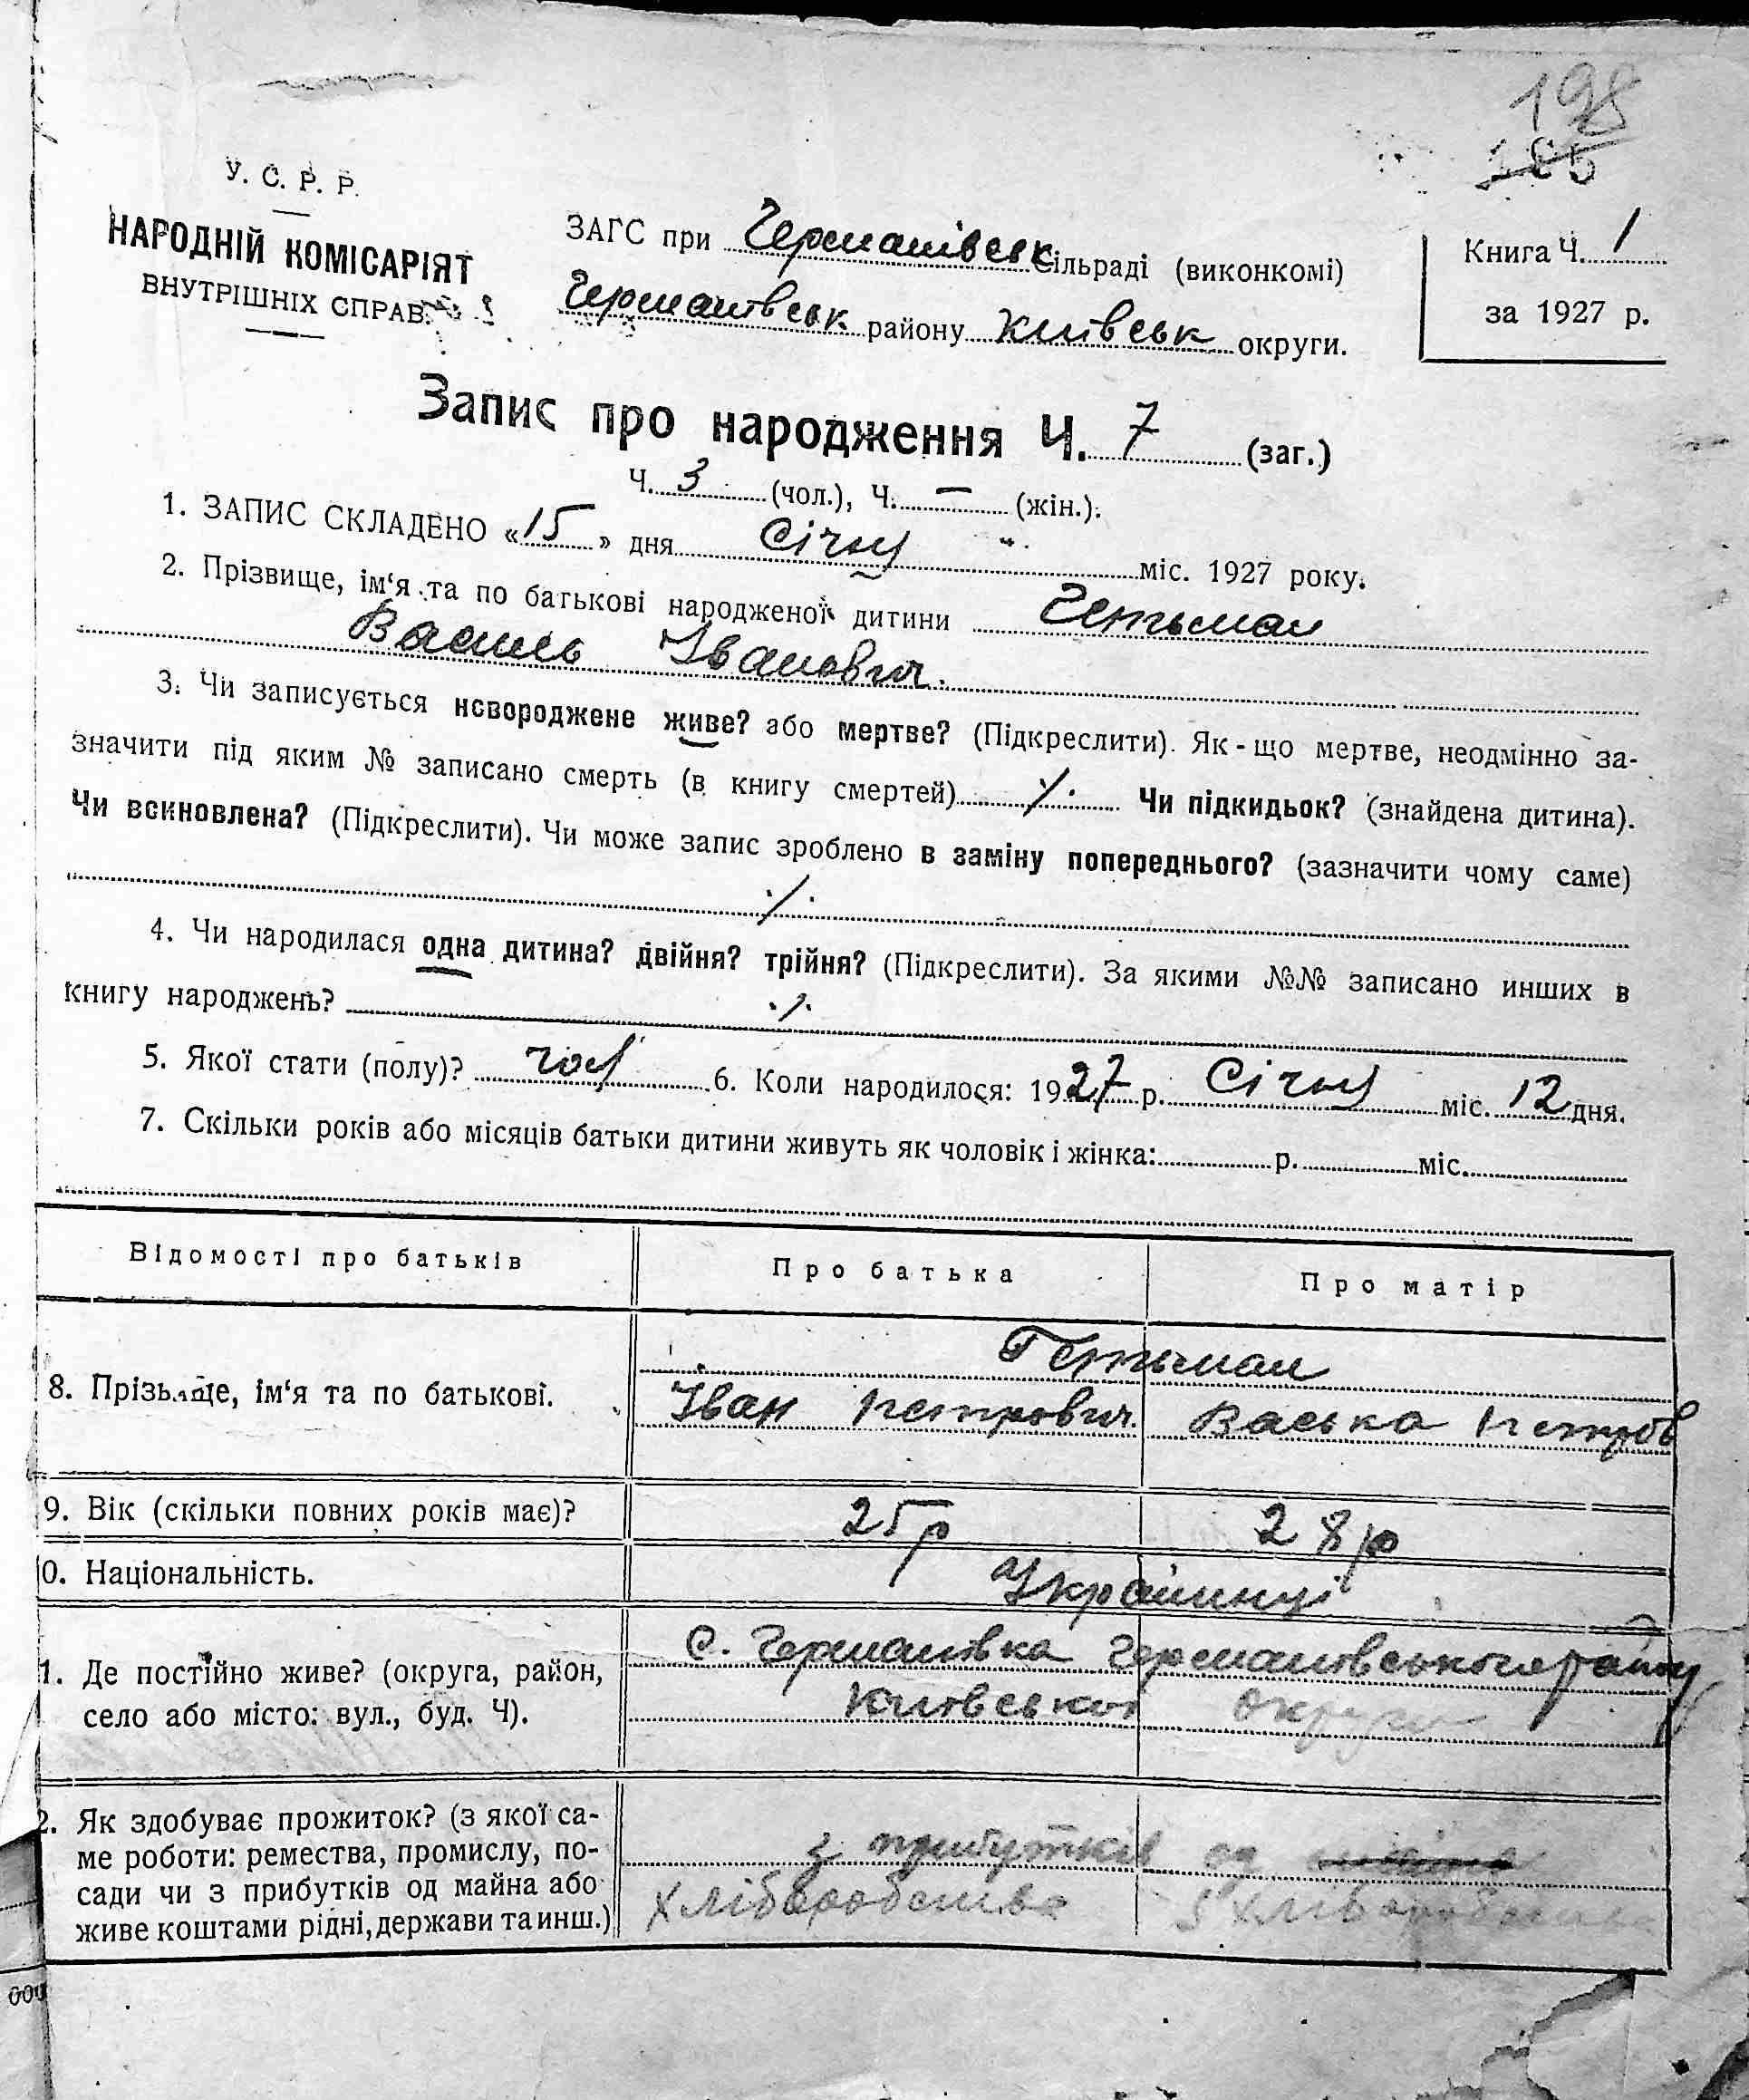 198
У. С. Р. Р.
НАРОДНІЙ КОМІСАРІЯТ
ВНУТРІШНІХ СПРАВ
ЗАГС при Германівськ сільраді (виконкомі)
Германівськ району Київськ округи.
Книга Ч. 1
за 1927 р.
Запис про народження Ч. 7 (заг.)
Ч. 3 (чол.), Ч. — (жін.).
1. ЗАПИС СКЛАДЕНО «15» дня Січня міс. 1927 року.
2. Прізвище, ім‘я та по батькові народженої дитини Гетьман
Василь Іванович.
3. Чи записується новороджене живе? або мертве? (Підкреслити). Як-що мертве, неодмінно за-
значити під яким № записано смерть (в книгу смертей) ·/· Чи підкидьок? (знайдена дитина).
Чи всиновлена? (Підкреслити). Чи може запис зроблено в заміну попереднього? (зазначити чому саме)
·/·
4. Чи народилася одна дитина? двійня? трійня? (Підкреслити). За якими №№ записано инших в
книгу народжень? ·/·
5. Якої стати (полу)? чол 6. Коли народилося: 1927 р. Січня міс. 12 дня.
7. Скільки років або місяців батьки дитини живуть як чоловік і жінка: р. міс.
Відомості про батьків Про батька Про матір
Гетьман
8. Прізвище, ім‘я та по батькові. Іван Петрович. Васька Петров
9. Вік (скільки повних років має)? 25 р 28 р
0. Національність. Українці
1. Де постійно живе? (округа, район, с. Германівка Германівського району
село або місто: вул., буд. Ч). Київської округи
2. Як здобуває прожиток? (з якої са-
ме роботи: ремества, промислу, по- з прибутків од
сади чи з прибутків од майна або хліборобства хліборобства
живе коштами рідні, держави та инш.)